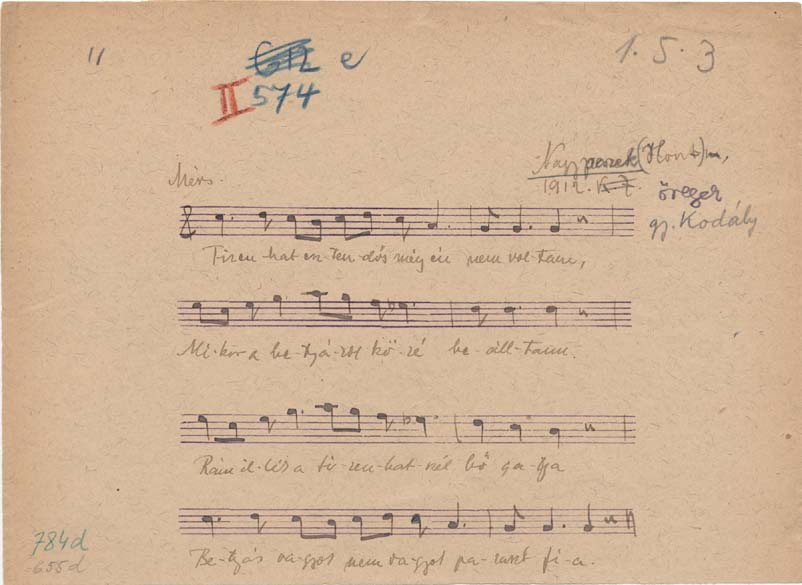 11
G12 e
1. 5. 3
II 574
Nagypeszek (Hont) m,
1912.
öreger
gj. Kodály
Mérs.
Tizen-hat en-ten-dős még én nem vol-tam,
Mi-kor a be-tyá-rok kö-zé be-áll-tam.
Rám il-lik a ti-zen-hat szél bő ga-tya
Be-tyár va-gyok nem va-gyok pa-raszt fi-a.
784d
655d